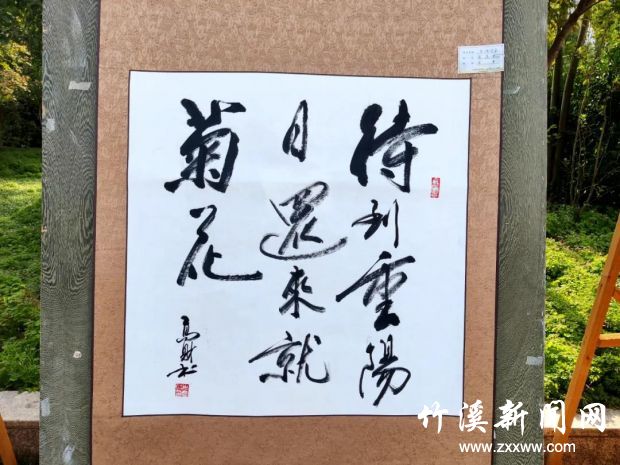 待到重陽
日還來就
菊花
竹溪新闻网
www.zxxww.com